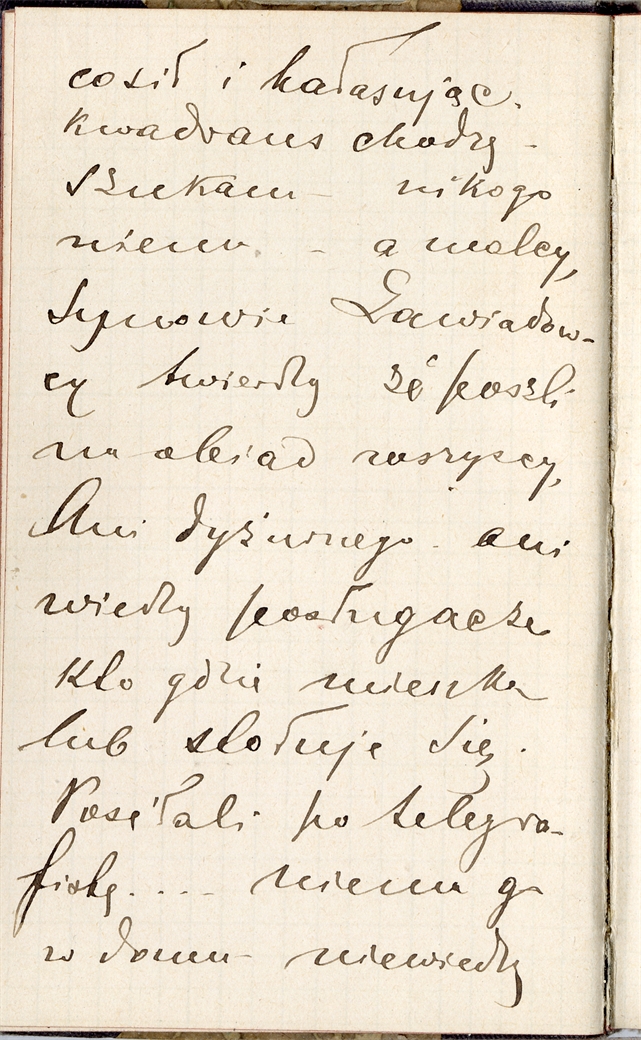 cosił i hałasując.
Kwadrans chodzę -
szukam - nikogo
niema - a malcy,
Synowie Zawiadow-
cy twierdzą że poszli
na obiad wszyscy,
Ani dyżurnego ani
wiedzą posługacze
kto gdzie mieszka
lub stołuje się.
Posełali po telegra-
fistę.... niema go
w domu - niewiedzą